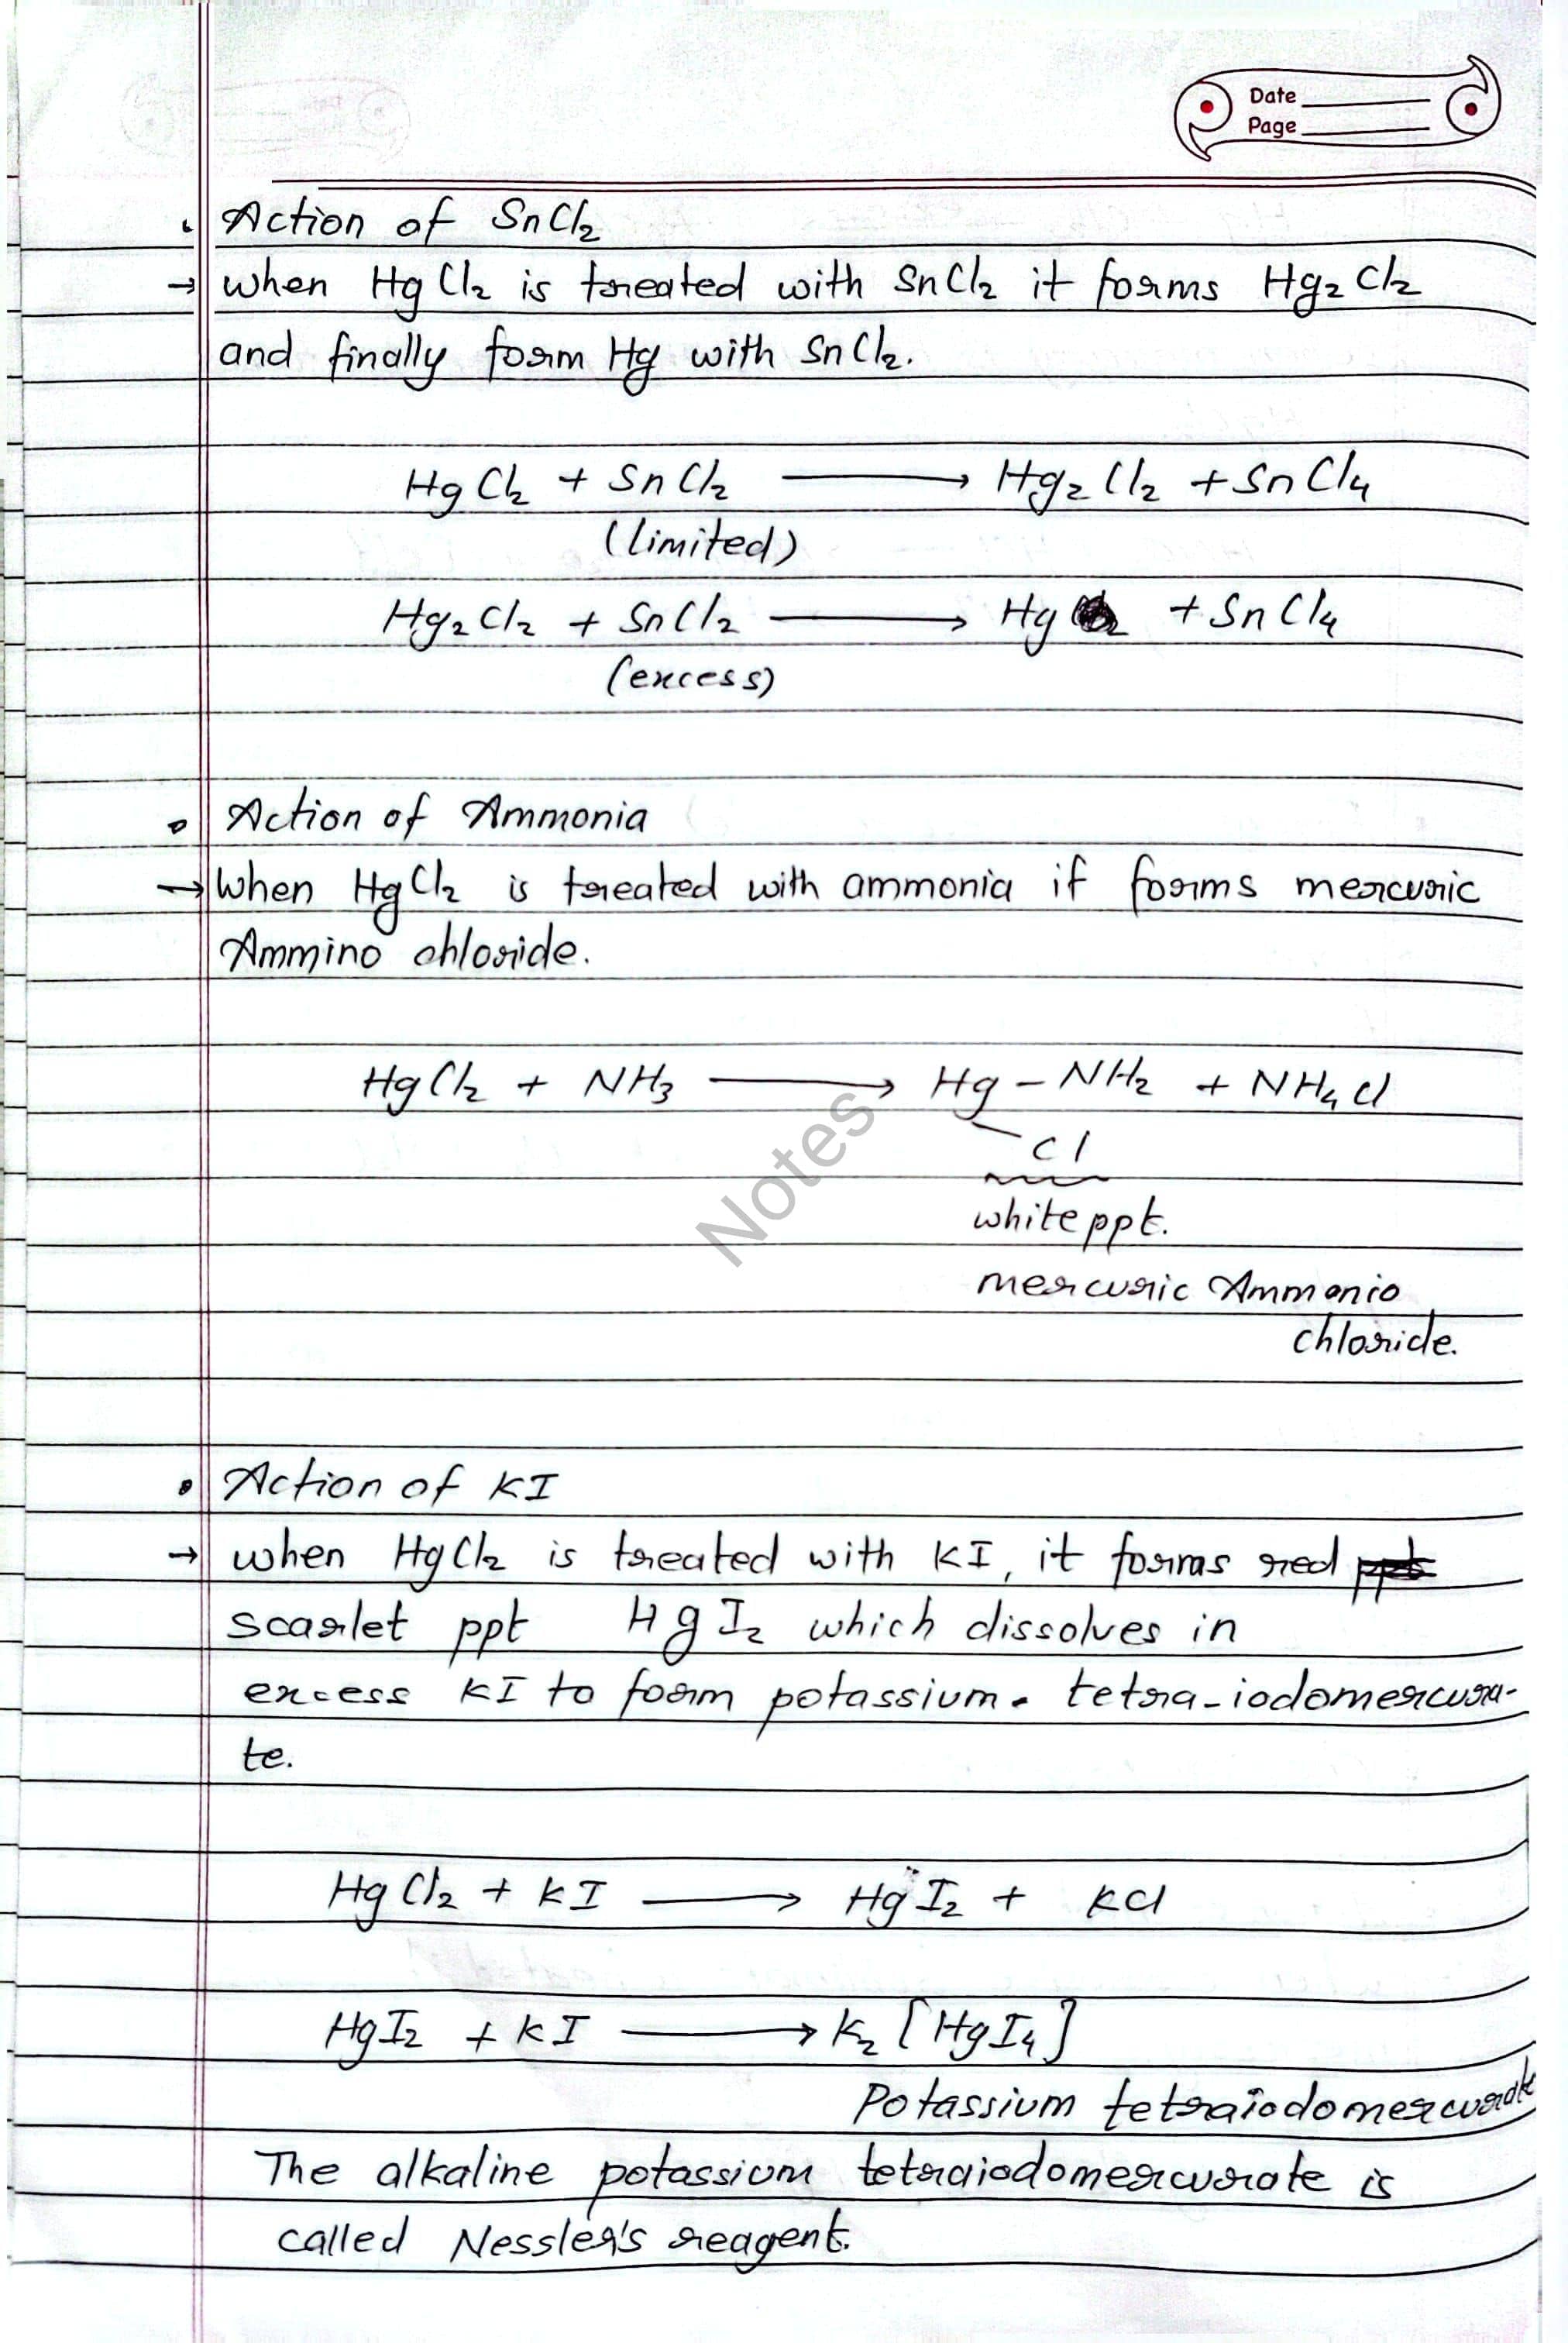 Date
Page
Action of SnCl₂
→ when HgCl₂ is treated with SnCl₂ it forms Hg₂Cl₂
and finally form Hg with SnCl₂.
HgCl₂ + SnCl₂ ⟶ Hg₂Cl₂ + SnCl₄
(limited)
Hg₂Cl₂ + SnCl₂ ⟶ Hg + SnCl₄
(excess)
• Action of Ammonia
→ When HgCl₂ is treated with ammonia if forms mercuric
Ammino chloride.
HgCl₂ + NH₃ ⟶ Hg – NH₂ + NH₄Cl
Cl
white ppt.
mercuric Ammonio
chloride.
Notes
• Action of KI
→ when HgCl₂ is treated with KI, it forms red ppt
scarlet ppt HgI₂ which dissolves in
excess KI to form potassium. tetra-iodomercura-
te.
HgCl₂ + KI ⟶ HgI₂ + KCl
HgI₂ + KI ⟶ K₂[HgI₄]
Potassium tetraiodomercurate
The alkaline potassium tetraiodomercurate is
called Nessler's reagent.